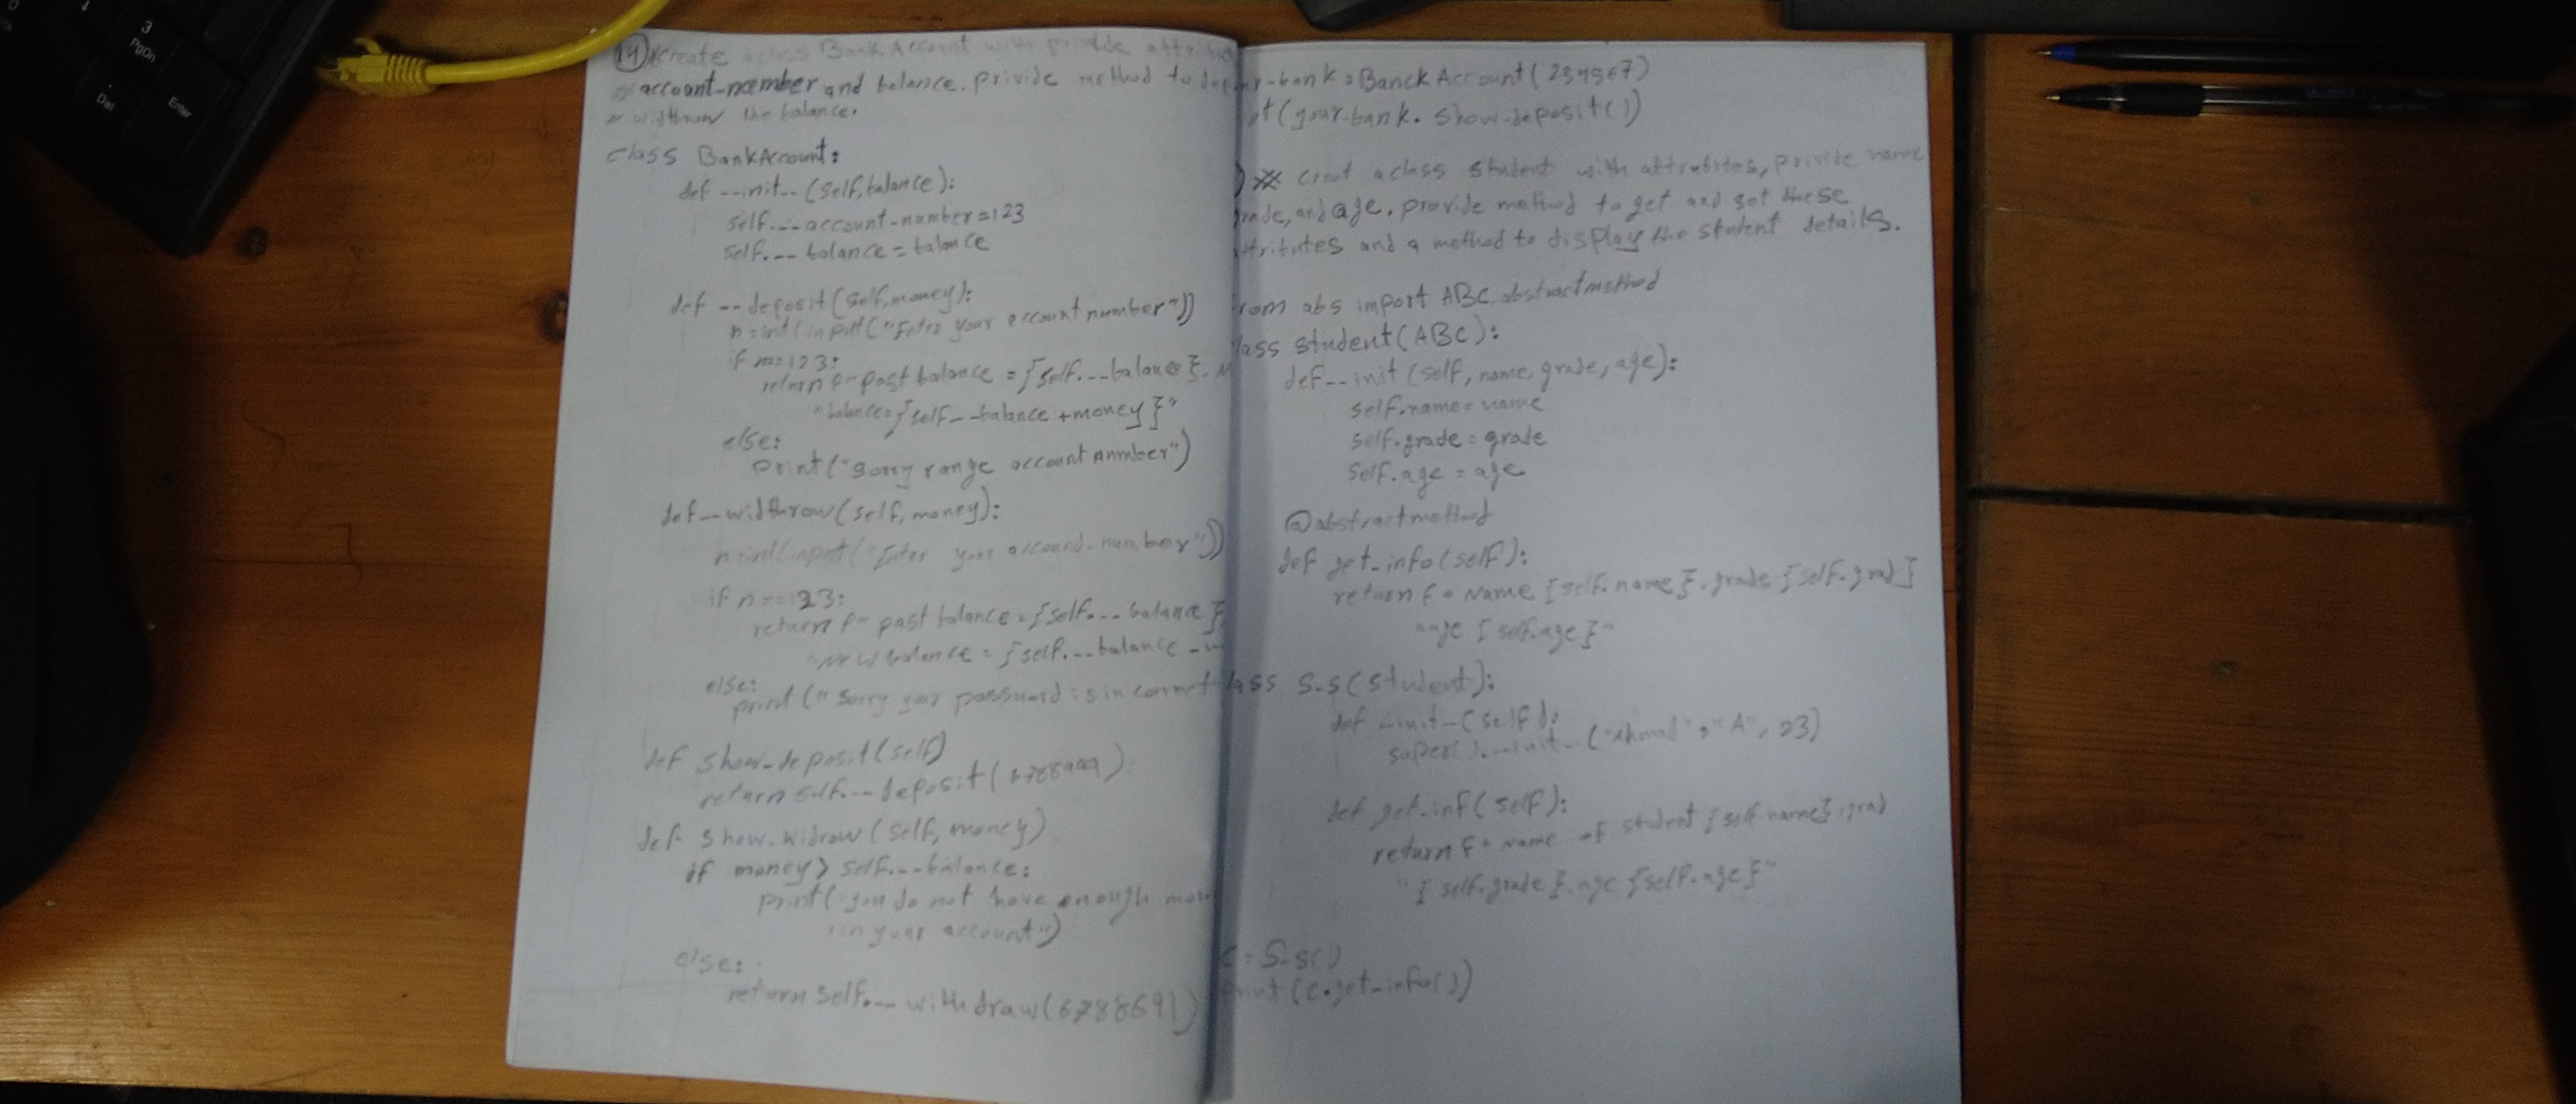 14) create a class BankAccount with private attribu
account-number and balance. privide method to depo
widthraw the balance.
class BankAccount:
def __init__(self,balance):
self.__account-number=123
self.__balance=balance
def __deposit(self,money):
n=int(input("Enter your account number"))
if n==123:
return f"past balance={self.__balance}.
"balance={self__balance+money}"
else:
print("sorry range account number")
def__widthrow(self,money):
n=int(input("Enter your account-number"))
if n==123:
return f"past balance={self.__balance}
"new balance={self.__balance-
else:
print("Sorry your password is in correct
def show-deposit(self)
return self.__deposit(
def show-widraw(self,money)
if money>self.__balance:
print("you do not have enough mon
in your account")
else:
return self.__withdraw(6788691)
r-bank=BanckAccount(234567)
nt(your-bank.show-deposit())
creat a class student with attributes, privite name
rade, and age. provide method to get and set these
ttributes and a method to display the student details.
rom abs import ABC,abstractmethod
lass student(ABC):
def__init(self,name,grade,age):
self.name=name
self.grade=grade
self.age=age
@abstractmethod
def get_info(self):
return f"Name {self.name}.grade{self.grad}
age{self.age}"
lass S-S(student):
def __init_(self):
super().__init_("Ahmad","A",23)
def get-inf(self):
return f"name of student{self.name};grad
"{self.grade}.age{self.age}"
c=S-S()
print(c.get-info())